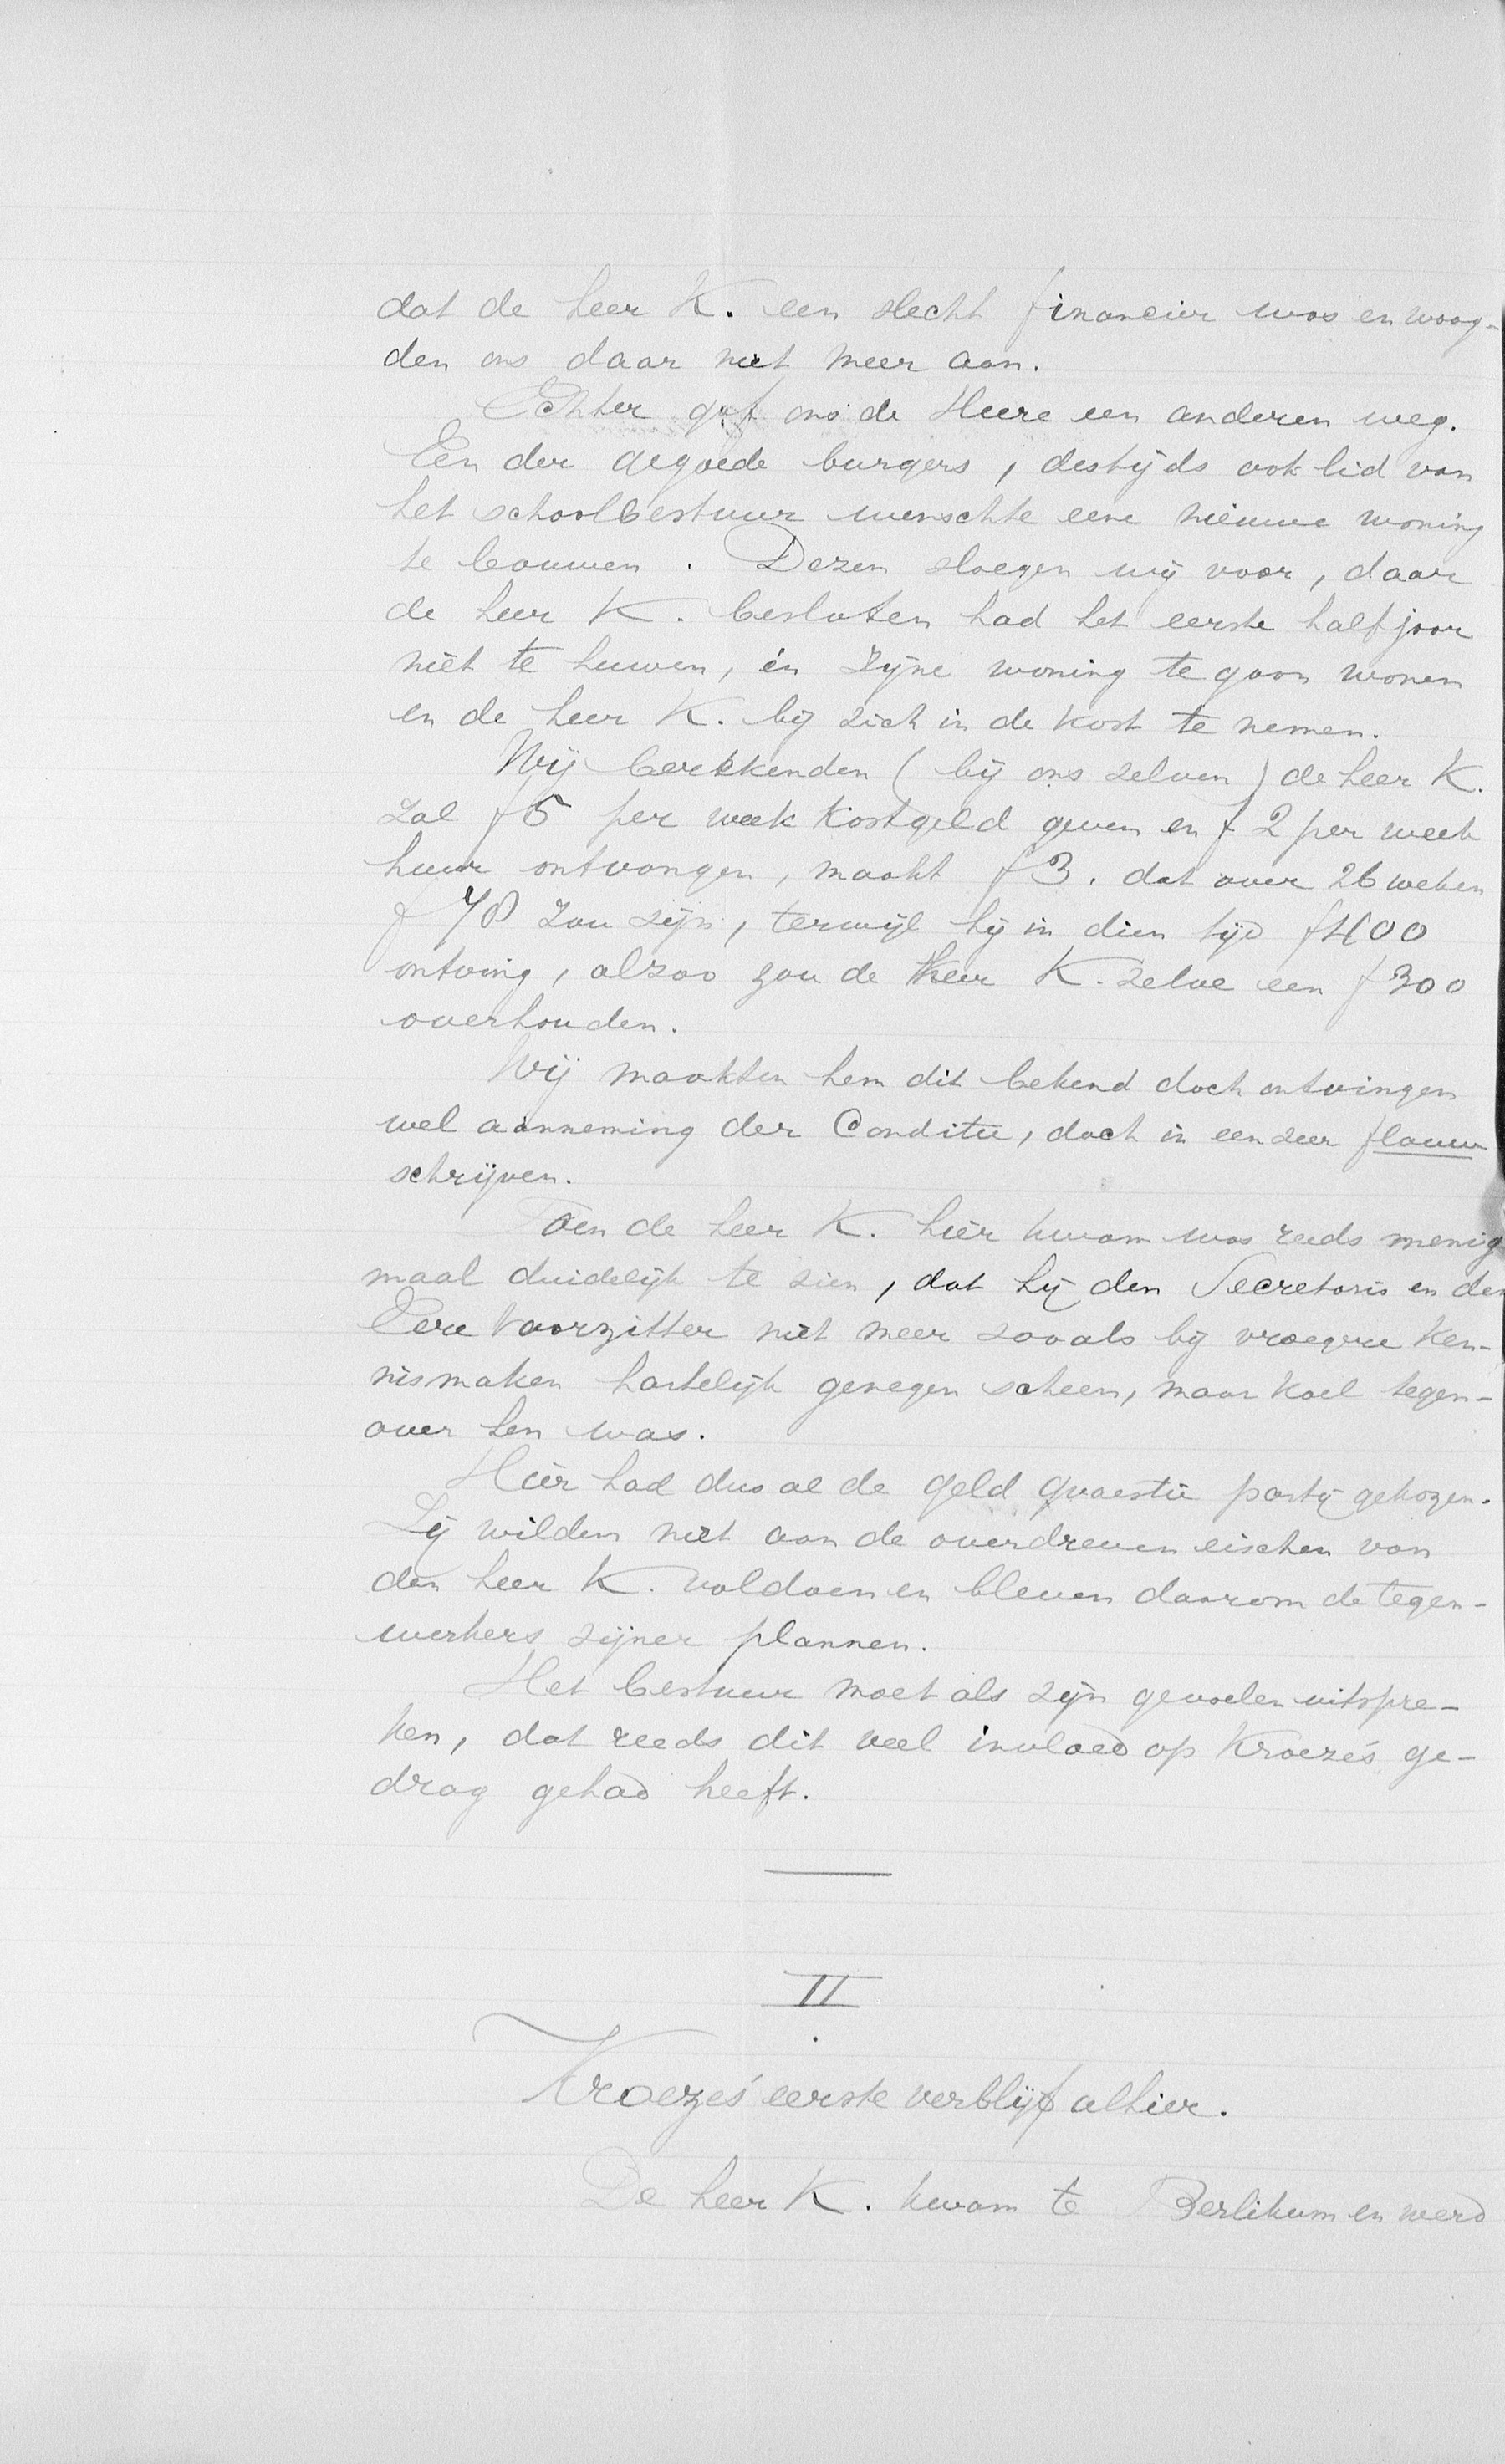 dat de heer K. een slecht financier was en waag-
den ons daar niet meer aan.
Echter gaf ons de Heere een anderen weg.
Een der gegoede burgers, destijds ook lid van
het schoolbestuur wenschte eene nieuwe woning
te bouwen. Dezen sloegen wij voor, daar
de heer K. besloten had het eerste halfjaar
niet te huwen, in zijne woning te gaan wonen
en de heer K. bij zich in de kost te nemen.
Wij berekkenden (bij ons zelven) de heer K.
zal f 5 per week kostgeld geven en f 2 per week
huur ontvangen, maakt f 3. dat over 26 weken
f 78 zou zijn, terwijl hij in dien tijd f 400
ontving, alzoo zou de heer K. zelve een f 300
overhouden.
Wij maakten hem dit bekend doch ontvingen
wel aanneming der Conditie, doch in een zeer flauw
schrijven.
Toen de heer K. hier kwam was reeds menig
maal duidelijk te zien, dat hij den Secretaris en den
Eere Voorzitter niet meer zooals bij vroegere ken-
nismaken hartelijk genegen scheen, maar koel tegen-
over hen was.
Hier had dus al de geld quaestie partij gekozen.
Zij wilden niet aan de overdreven eischen van
den heer K. voldoen en bleven daarom de tegen-
werkers zijner plannen.
Het bestuur moet als zijn gevoelen uitspre-
ken, dat reeds dit veel invloed op Kroeze's ge-
drag gehad heeft.
II
Kroeze's eerste verblijf alhier.
De heer K. kwam te Berlikum en werd